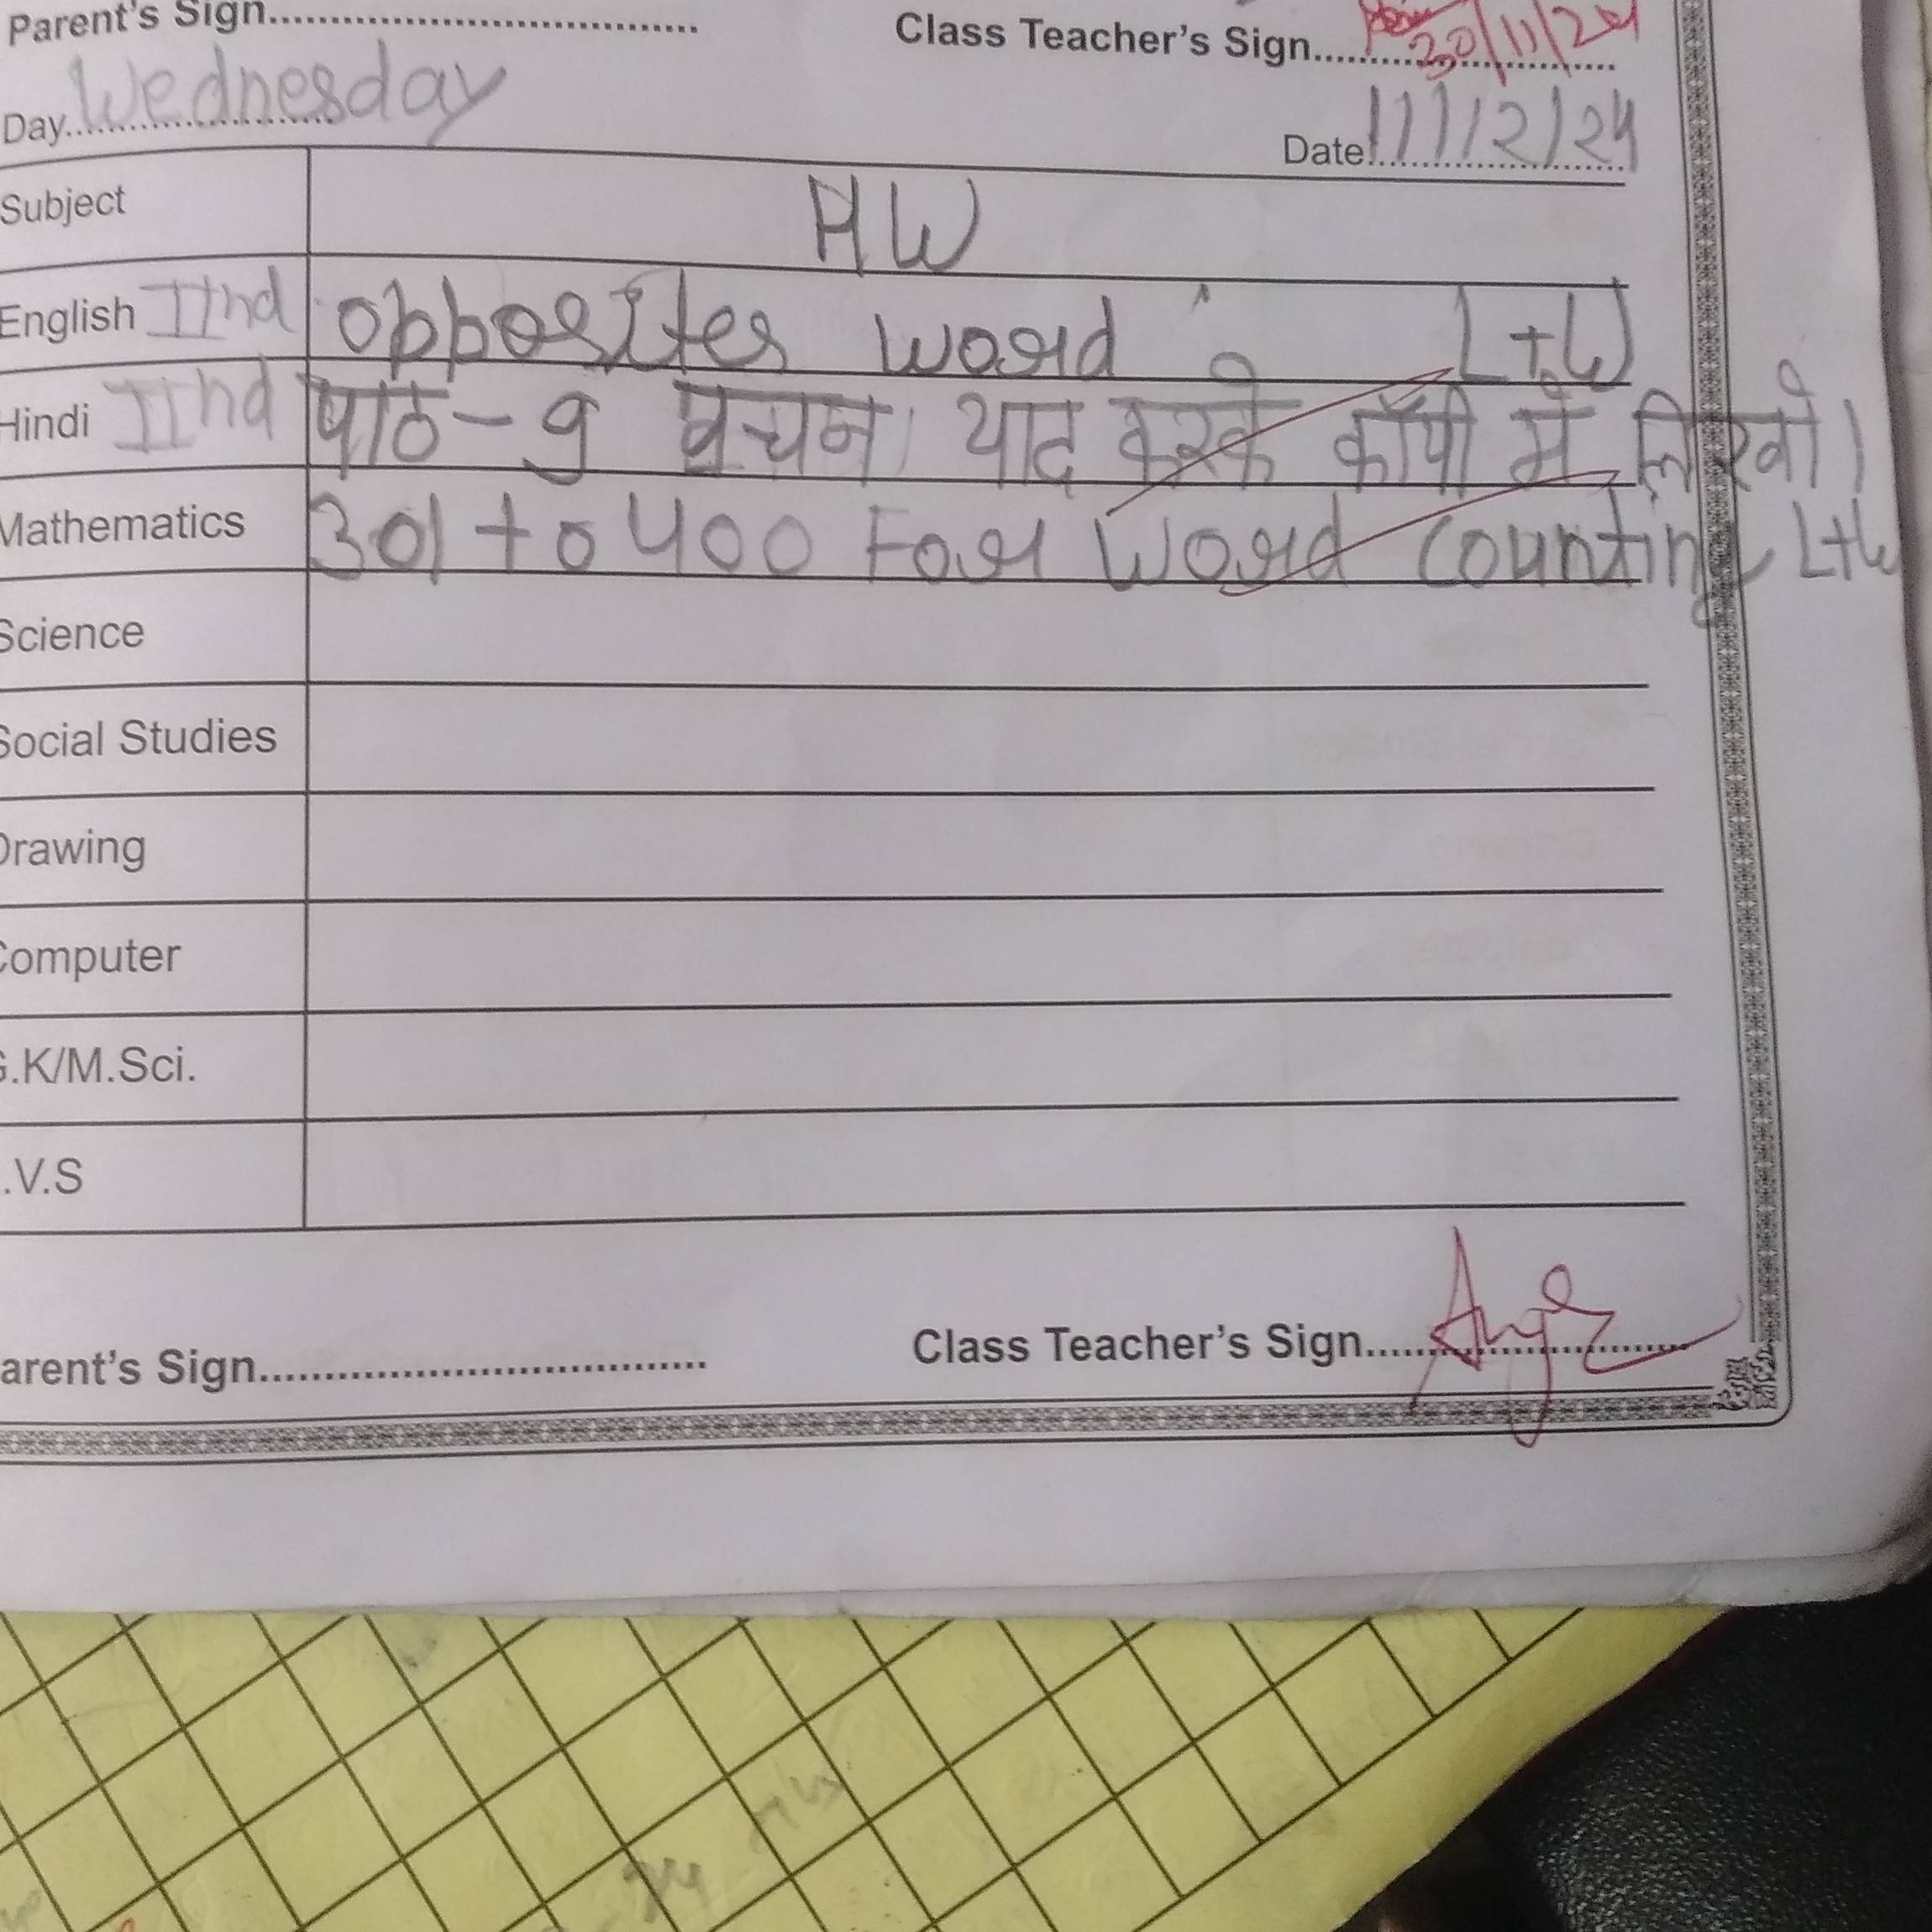 Parent's Sign........................................
Class Teacher's Sign.................... 30/11/24
Day.. Wednesday
Date 11/12/24
Subject HW
English IInd opposites word L+W
Hindi IInd पाठ-9 वचन। याद करके कॉपी में लिखो।
Mathematics 301 to 400 For Word Counting L+W
Science
Social Studies
Drawing
Computer
G.K/M.Sci.
.V.S
arent's Sign........................................
Class Teacher's Sign.............................